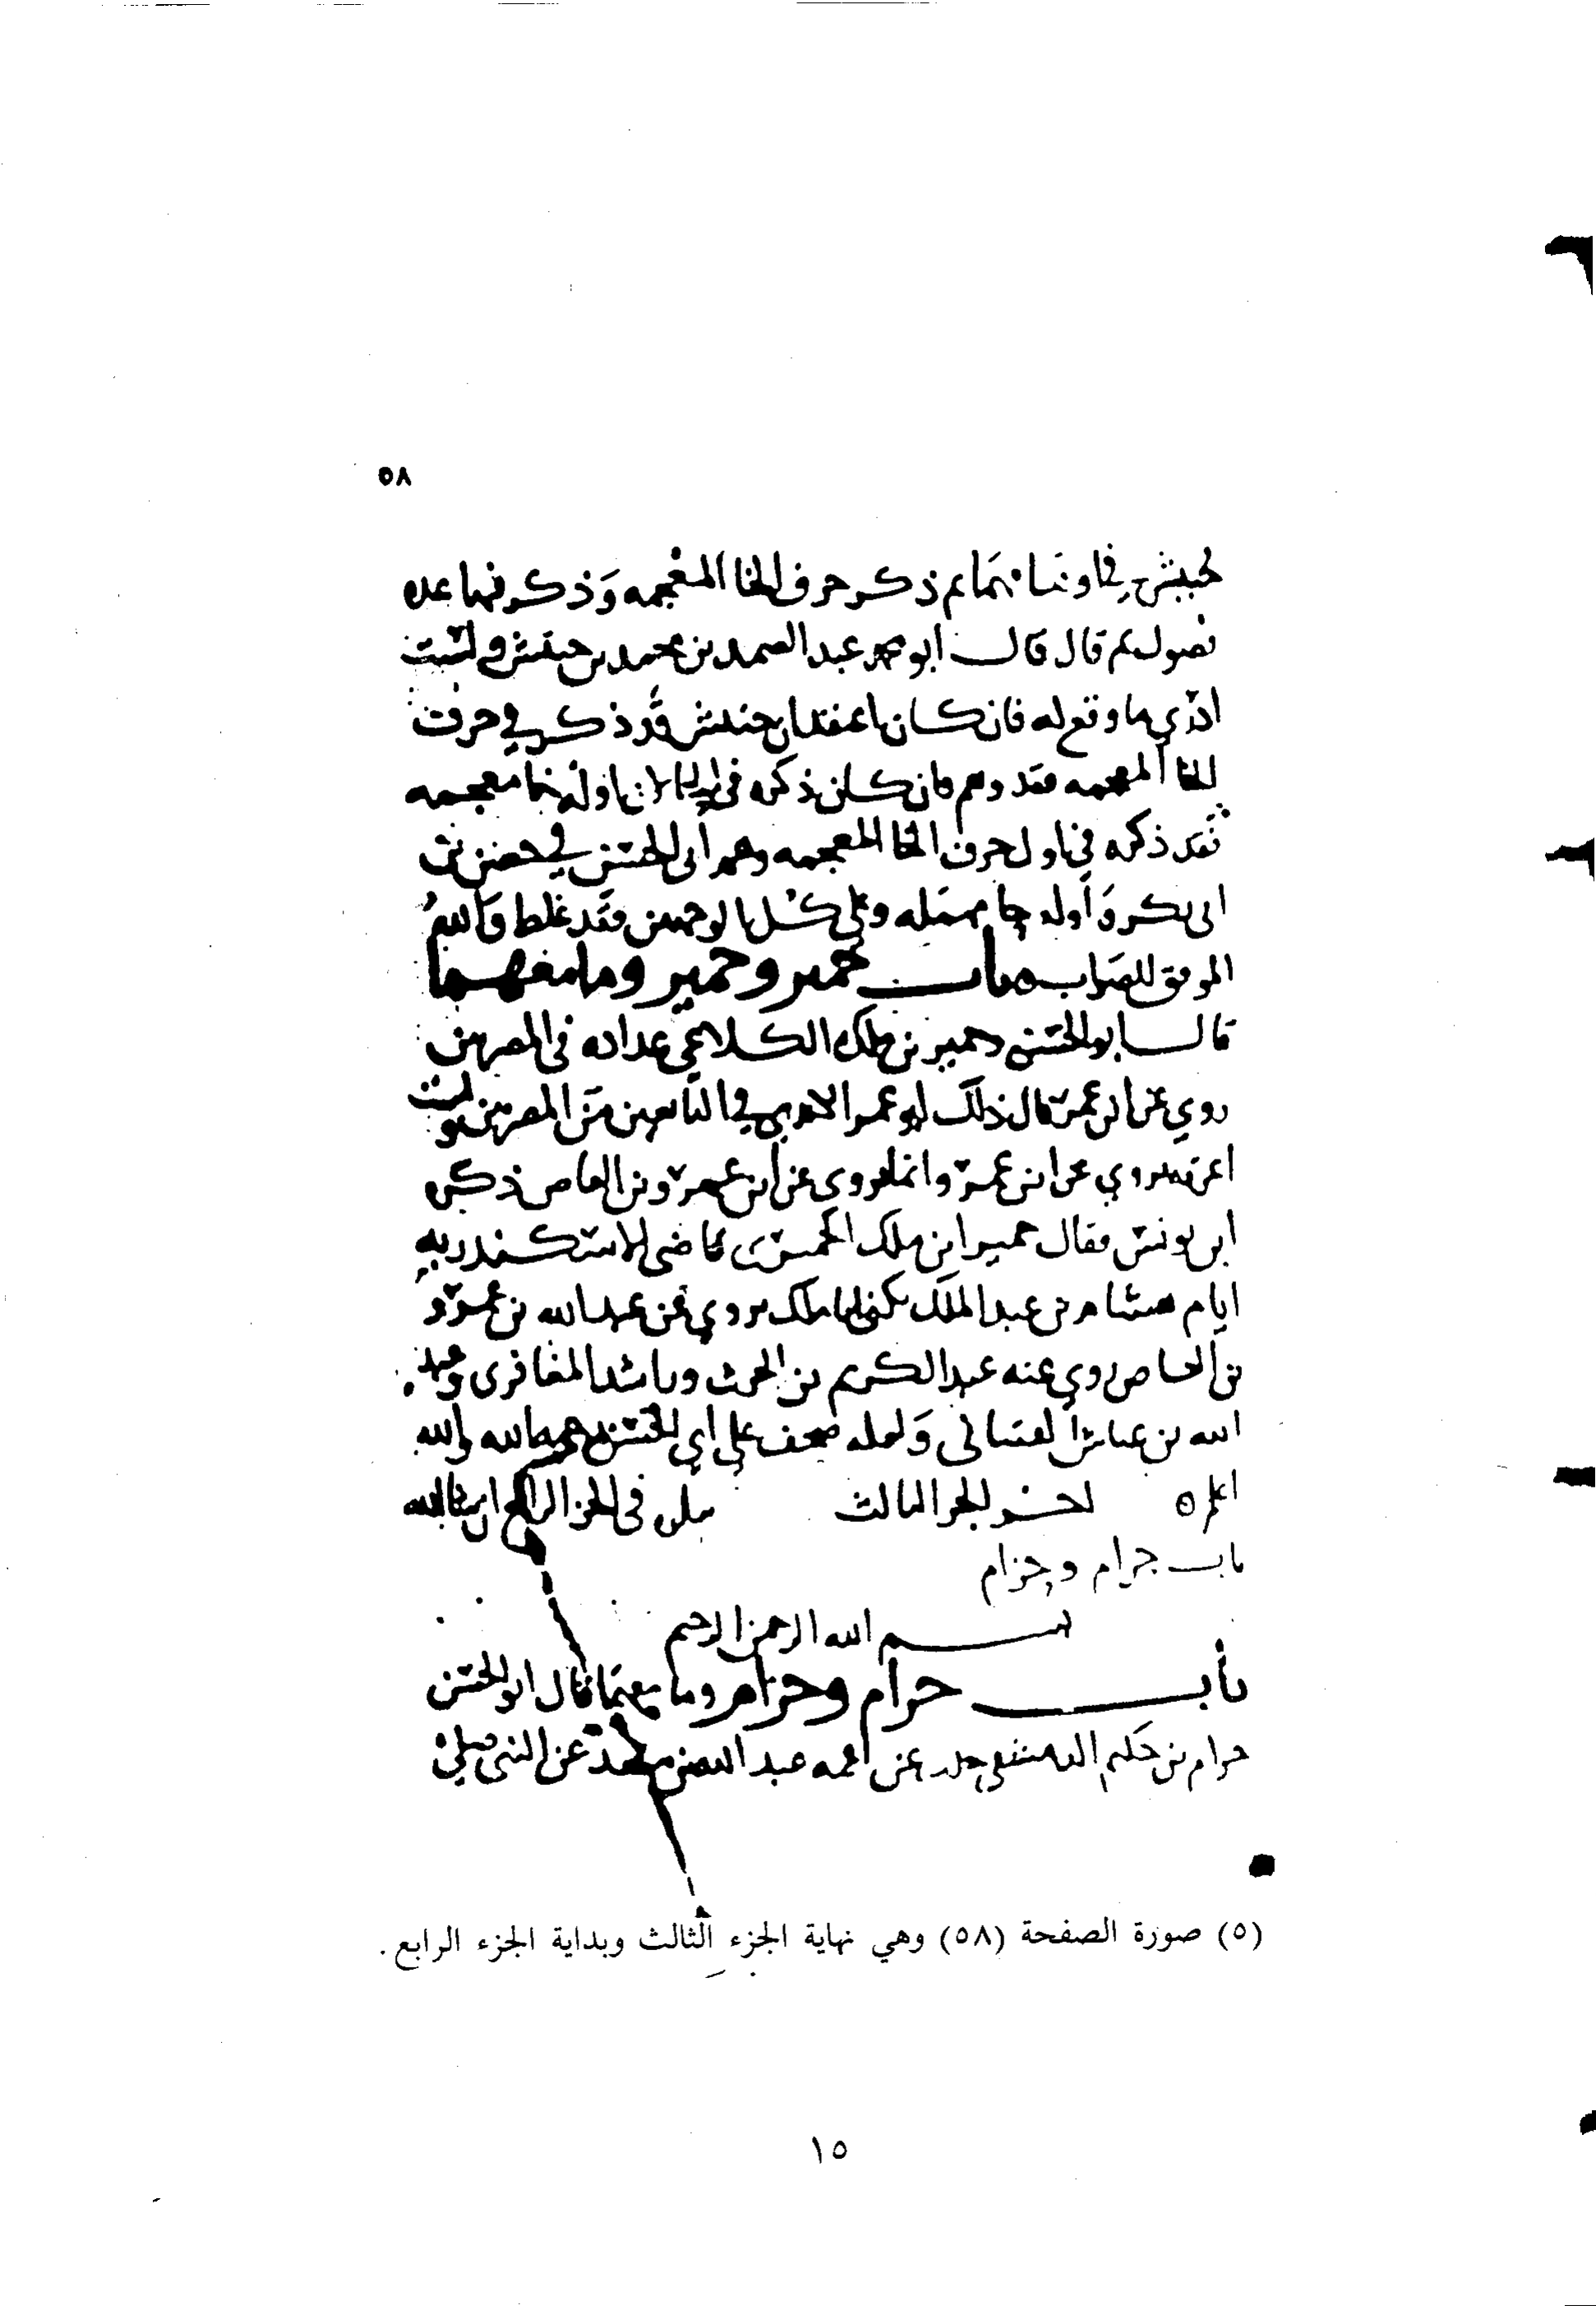 ٥٨
ثم ذكر حرف الخا المعجمه وذكر فيها عده
فصول ثم قال قال ابو محمد عبد الصمد بن محمد بن حنبش ولست
ادري ما وقع له فان كان اعتقد ان حنبش قد ذكر في حرف
الخا المعجمه فقد وهم وان كان ذكره في اوله خا معجمه
فقد ذكره في اول حرف الخا المعجمه وهم ابي الحسن في حصن بن
ابي بكر واوله حا مهمله وعلى كل الوجهين فقد غلط والله
الموفق للصواب باب حمير وحمير وما معهما
قال ابو الحسن وحمير بن ملك الكلاعي عداده في المصريين
روي عن ابن عمر قال ذلك ابو عمر في التابعين من المصريين ولست
اعرفه يروي عن ابن عمر وانما روى عن ابن عمرو بن العاص ذكره
ابن يونس فقال حمير ابن ملك الحميري قاضي الاسكندريه
ايام هشام بن عبد الملك يكنى ابا ملك يروي عن عبد الله بن عمرو
بن العاص روي عنه عبد الكريم بن الحرث المعافرى وعبد
الله بن عياش القتباني ولعله صحف على ابي الحسن رحمه الله والله
اعلم ٥ اخر الجز الثالث يتلوه في الجز الرابع ان شا الله
باب حرام وحزام
بسم الله الرحمن الرحيم
باب حرام وحزام وما معهما قال ابو الحسن
حرام بن حكيم الدمشقي عن عمه عبد الله بن سعد عن النبي صلى
(٥) صورة الصفحة (٥٨) وهي نهاية الجزء الثالث وبداية الجزء الرابع .
١٥